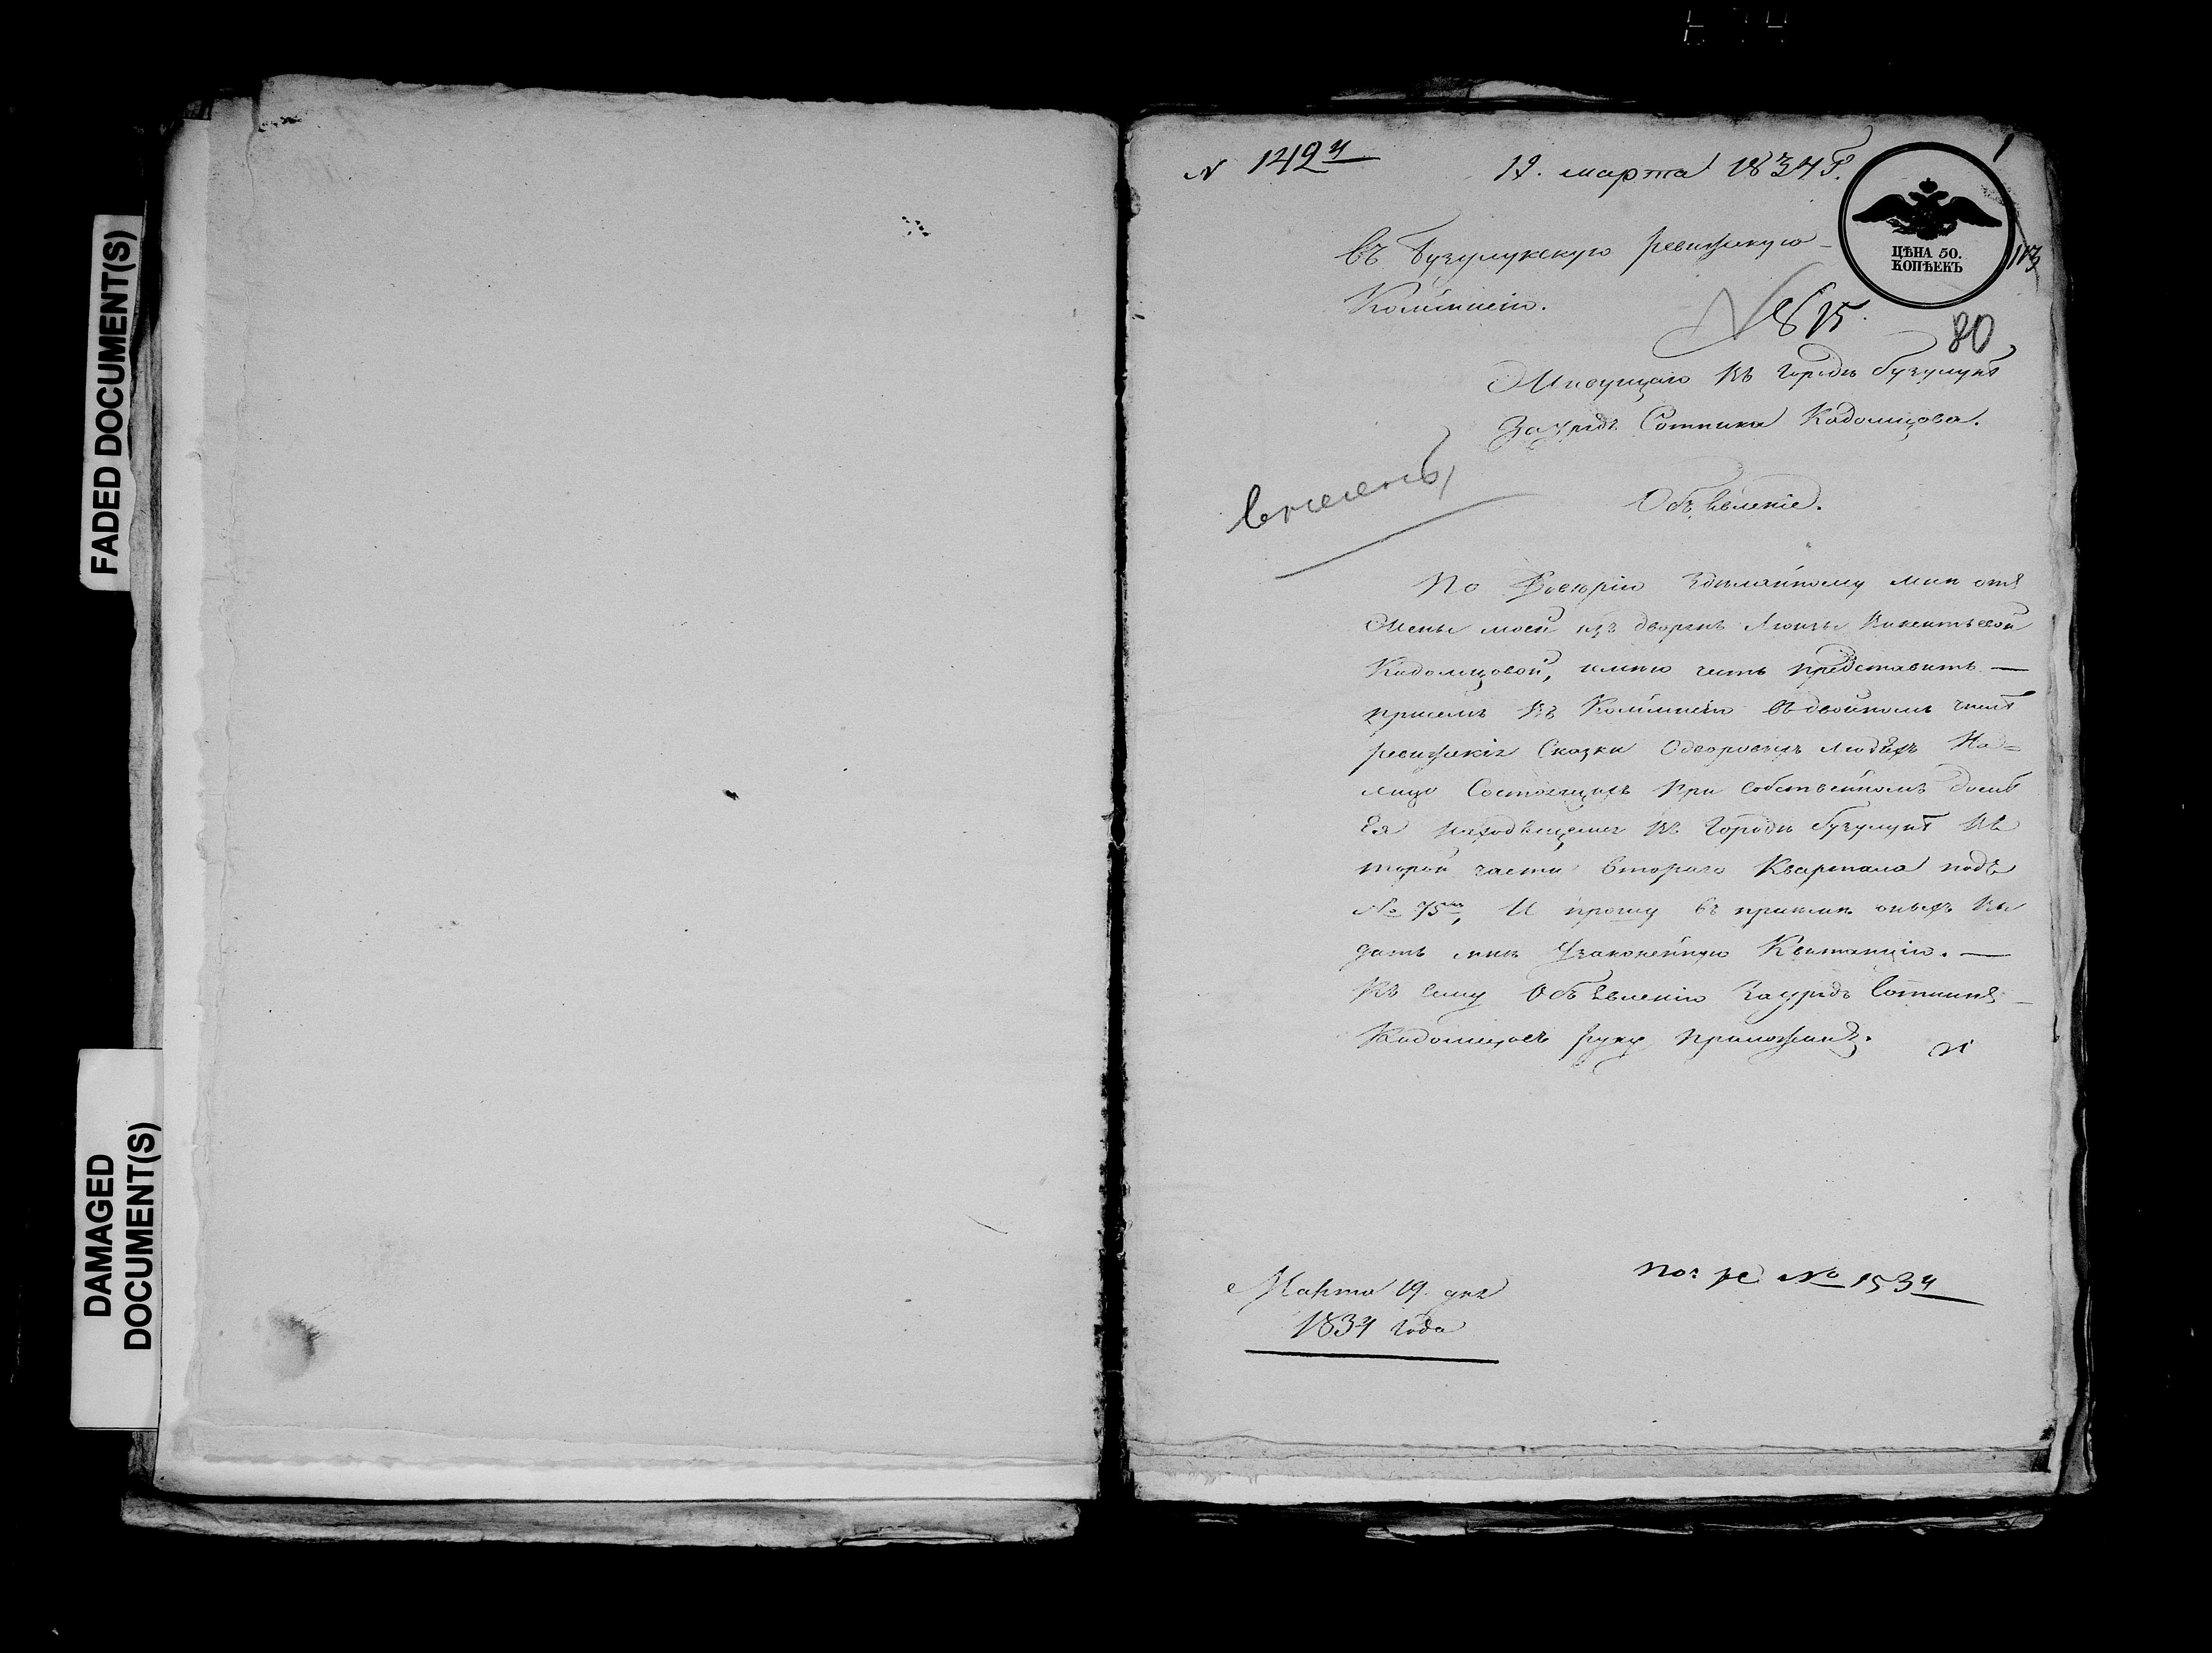 FADED DOCUMENT(S)
DAMAGED
DOCUMENT(S)
N 1424
19. марта 1834 Г.
1
ЦѢНА 50.
КОПѢЕКЪ
113
въ Бузулукскую ревижскую
Коммисію.
N 815.
80
Живущаго въ городѣ Бузулукѣ
Зауридъ Сотника Кадомцова.
внесенъ
Объявленіе.
По Довѣрію Здѣланному мнѣ отъ
Жены моей изъ дворянъ Викентьевой
Кадомцовой, имѣю честь представить —
присемъ въ Коммисію въ двойномъ числѣ
ревижскія Сказки Одворовыхъ людѣхъ На=
лицо Состоящихъ при собственномъ домѣ
Ея находящемся въ городѣ Бузулукѣ въ
торой части втораго Квартала подъ
№ 75м, И прошу въ приемѣ оныхъ вы
дать мнѣ Узаконенную Квитанцію. —
Къ сему Объявленію Зауридъ Сотникъ
Кадомцовъ руку приложилъ.
Марта 19. дня
1834 года
по ре № 1534